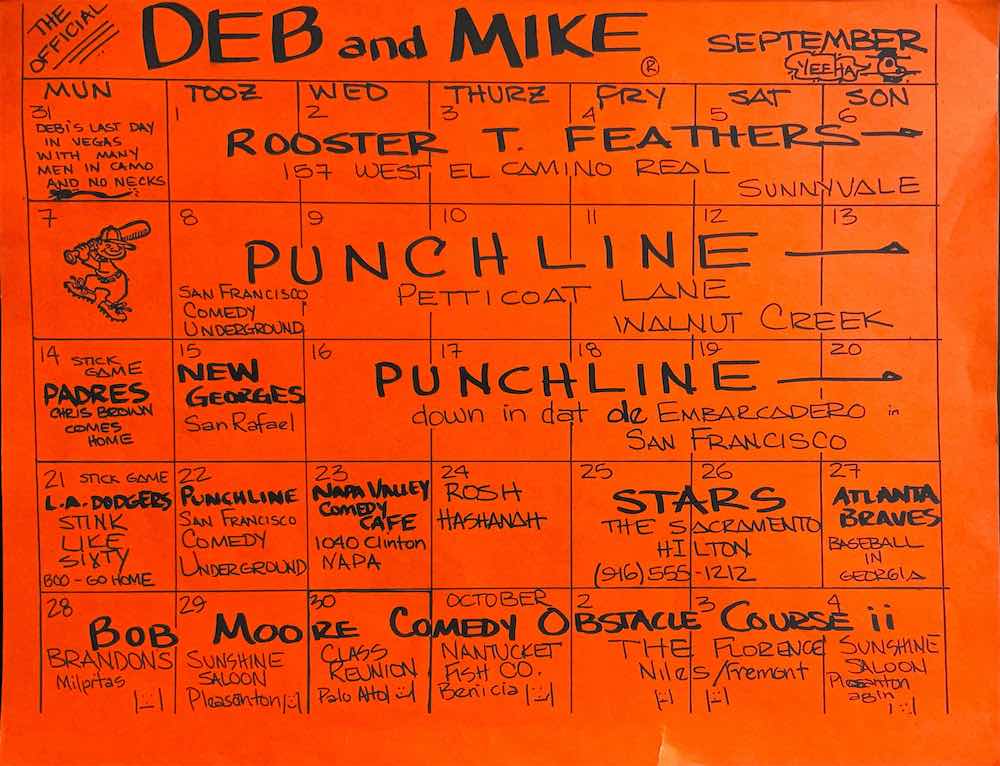 THE OFFICIAL
DEB and MIKE ®
SEPTEMBER
YEEHA
MUN TOOZ WED THURZ FRY SAT SON
31
DEBI'S LAST DAY
IN VEGAS
WITH MANY
MEN IN CAMO
AND NO NECKS
1 2 3 4 5 6
ROOSTER T. FEATHERS
157 WEST EL CAMINO REAL
SUNNYVALE
7
8 9 10 11 12 13
PUNCHLINE
SAN FRANCISCO
COMEDY
UNDERGROUND
PETTICOAT LANE
WALNUT CREEK
14 STICK
GAME
PADRES
CHRIS BROWN
COMES
HOME
15
NEW
GEORGES
San Rafael
16 17 18 19 20
PUNCHLINE
down in dat ole EMBARCADERO in
SAN FRANCISCO
21 STICK GAME
L.A. DODGERS
STINK
LIKE
SIXTY
BOO - GO HOME
22
PUNCHLINE
SAN FRANCISCO
COMEDY
UNDERGROUND
23
NAPA VALLEY
COMEDY
CAFE
1040 Clinton
NAPA
24
ROSH
HASHANAH
25 26
STARS
THE SACRAMENTO
HILTON
(916) 555-1212
27
ATLANTA
BRAVES
BASEBALL
IN
GEORGIA
28 29 30 OCTOBER 2 3 4
BOB MOORE COMEDY OBSTACLE COURSE ii
BRANDONS
Milpitas
SUNSHINE
SALOON
Pleasanton
CLASS
REUNION
Palo Alto
NANTUCKET
FISH CO.
Benicia
THE FLORENCE
Niles/Fremont
SUNSHINE
SALOON
Pleasanton
agin